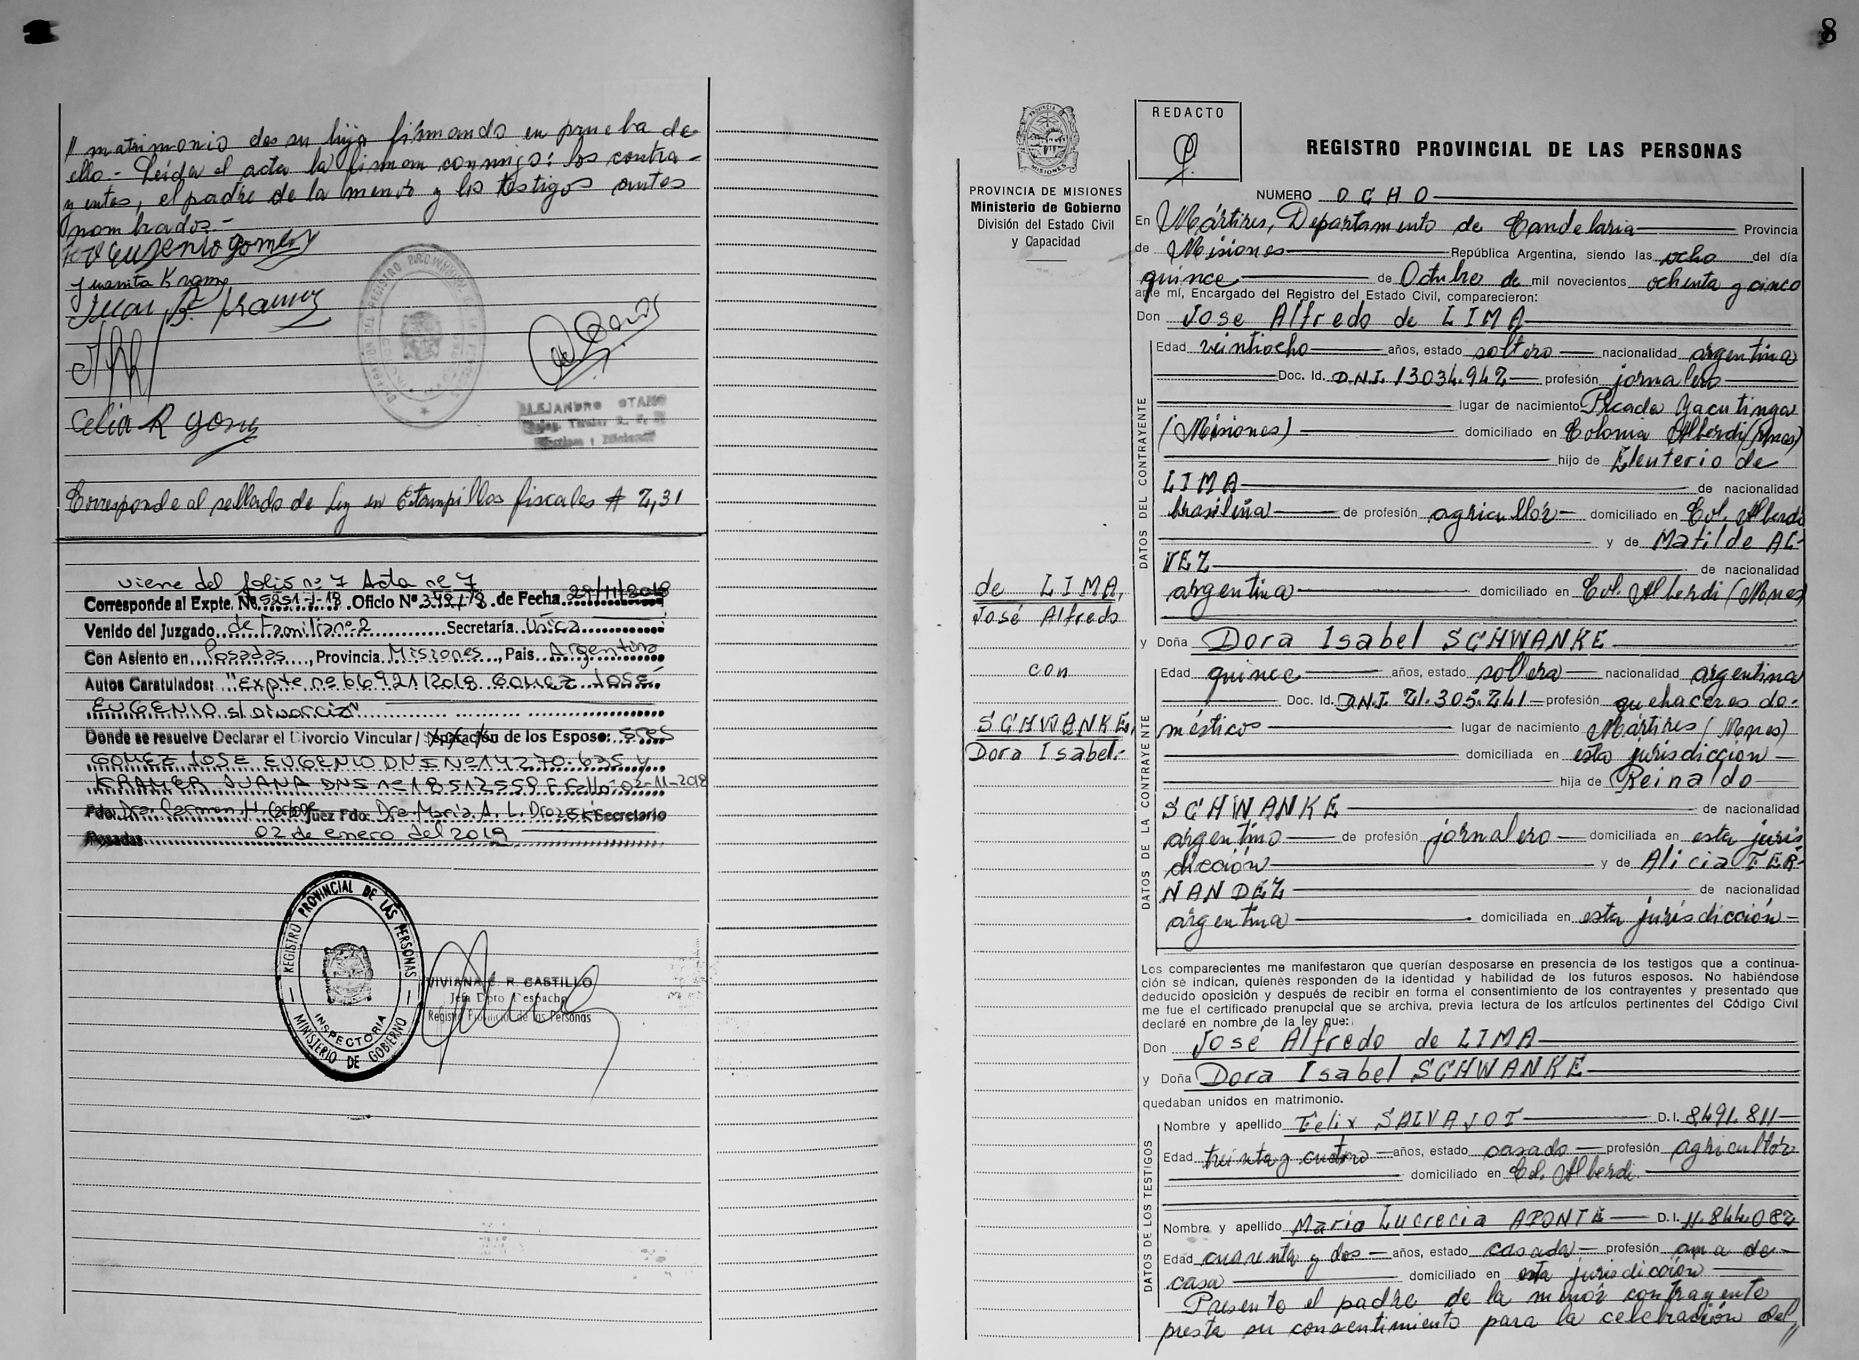 // matrimonio de su hija firmando en prueba de
ello.- Leída el acta la firman conmigo: los contra-
yentes, el padre de la menor y los testigos antes
nombrados.-
Eugenio Gomez
Juanita Kramer
Juan B. Kramer
Celia R Gomez
ALEJANDRO
Corresponde al sellado de Ley en Estampillas fiscales A 2,31
viene del folio nº 7 Acta nº 7
Corresponde al Expte. Nº 5251-J-18 .Oficio Nº .de Fecha 29/11/2018
Venido del Juzgado de Familia nº 2 Secretaría Unica
Con Asiento en Posadas, Provincia Misiones, Pais Argentina
Autos Caratulados: "Expte nº 66921/2018 GOMEZ JOSE
EUGENIO s/Divorcio"
Donde se resuelve Declarar el Divorcio Vincular / Separación de los Esposo: SRES
GOMEZ JOSE EUGENIO DNI Nº 14.270.635 y
KRAMER JUANA DNI nº 18.512.558 F. Fallo: 02-11-2018
Fdo. Dra. Carmen H. Juez Fdo. Dra. María A. L. Secretario
Posadas 02 de enero del 2019
REGISTRO PROVINCIAL DE LAS PERSONAS
INSPECTORIA
MINISTERIO DE GOBIERNO
VIVIANA E. R. CASTILLO
Jefa Dpto Despacho
Registro Provincial de las Personas
8
PROVINCIA DE MISIONES
PROVINCIA DE MISIONES
Ministerio de Gobierno
División del Estado Civil
y Capacidad
de LIMA,
José Alfredo
con
SCHWANKE,
Dora Isabel.-
REDACTO
REGISTRO PROVINCIAL DE LAS PERSONAS
NUMERO OCHO
En Mártires, Departamento de Candelaria Provincia
de Misiones República Argentina, siendo las ocho del día
quince de Octubre de mil novecientos ochenta y cinco
ante mí, Encargado del Registro del Estado Civil, comparecieron:
Don José Alfredo de LIMA
DATOS DEL CONTRAYENTE
Edad veintiocho años, estado soltero nacionalidad argentina
Doc. Id. D.N.I. 13034.942 profesión jornalero
lugar de nacimiento Picada Yacutinga
(Misiones) domiciliado en Colonia Alberdi (Mnes)
hijo de Eleuterio de
LIMA de nacionalidad
brasileña de profesión agricultor domiciliado en Col. Alberdi
y de Matilde AL-
VEZ de nacionalidad
argentina domiciliado en Col. Alberdi (Mnes)
y Doña Dora Isabel SCHWANKE
DATOS DE LA CONTRAYENTE
Edad quince años, estado soltera nacionalidad argentina
Doc. Id. D.N.I. 21.305.241 profesión quehaceres do-
mésticos lugar de nacimiento Mártires (Mnes)
domiciliada en esta jurisdicción
hija de Reinaldo
SCHWANKE de nacionalidad
argentino de profesión jornalero domiciliada en esta juris
dicción y de Alicia FER-
NANDEZ de nacionalidad
argentina domiciliada en esta jurisdicción
Los comparecientes me manifestaron que querían desposarse en presencia de los testigos que a continua-
ción se indican, quienes responden de la identidad y habilidad de los futuros esposos. No habiéndose
deducido oposición y después de recibir en forma el consentimiento de los contrayentes y presentado que
me fue el certificado prenupcial que se archiva, previa lectura de los artículos pertinentes del Código Civil
declaré en nombre de la ley que:
Don José Alfredo de LIMA
y Doña Dora Isabel SCHWANKE
quedaban unidos en matrimonio.
DATOS DE LOS TESTIGOS
Nombre y apellido Felix SALVAJOT D.I. 8.491.811
Edad treinta y cuatro años, estado casado profesión agricultor
domiciliado en Col. Alberdi
Nombre y apellido María Lucrecia APONTE D.I. 11.844.082
Edad cuarenta y dos años, estado casada profesión ama de
casa domiciliado en esta jurisdicción
Presente el padre de la menor contrayente
presta su consentimiento para la celebración del //